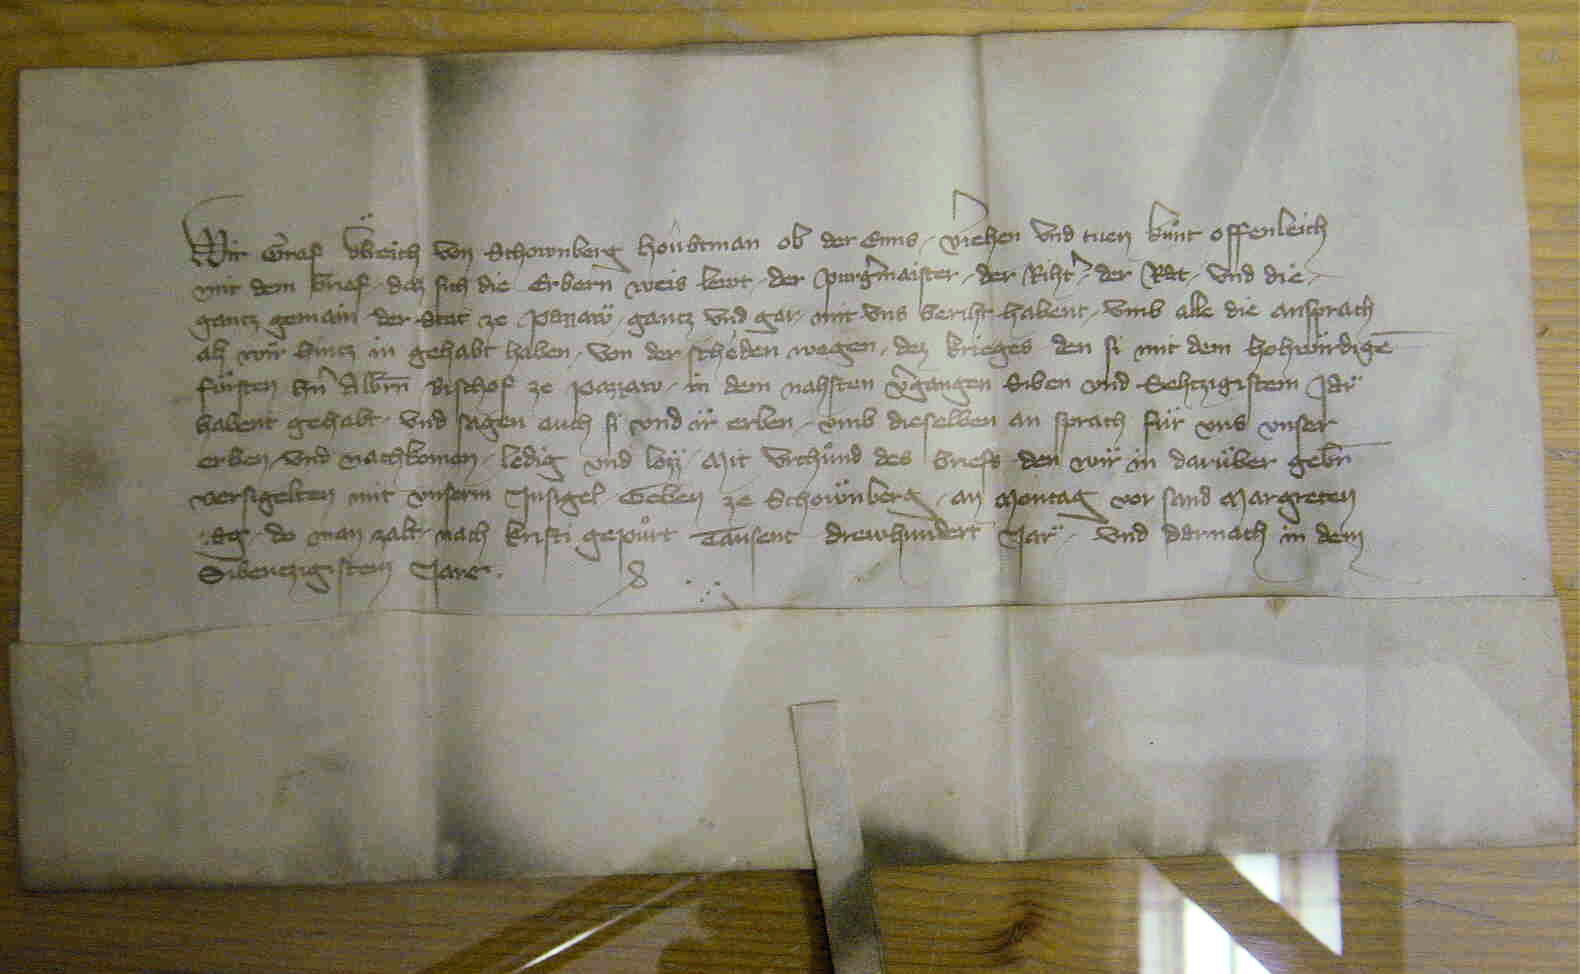 Wir Graf Vlreich von Schownberg houbtman ob der Enns, vriehen vnd tuen kunt offenleich
mit dem brief, daz sich die Erbern weis lewt, der purgermaister, der Riht', der Rat, vnd die
gantz gemain der Stat ze Pazzaw, gantz vnd gar, mit vns beriht habent, vmb alle die ansprach
alz wir hintz in gehabt haben, von der scheden wegen, dez krieges den si mit dem hohwirdigē
fürsten hn̄ Albrn̄ Bischof ze Pazzaw, in dem nahsten v'gangen Siben vnd Sehtzigistem Jar
habent gehabt, vnd sagen auch si vnd ir erben, vmb dieselben an sprach für vns vnser
erben, vnd nachkomen, ledig vnd loz, Mit vrchund des briefs den wir in darüber gebn̄
versigelten mit vnserm Insigel, Geben ze Schownberg, an Montag vor sand Margreten
tag, do man zalt nach kristi gepurt Tausent drewhundert Jar, vnd darnach in dem
Sibentzigistem Jare.